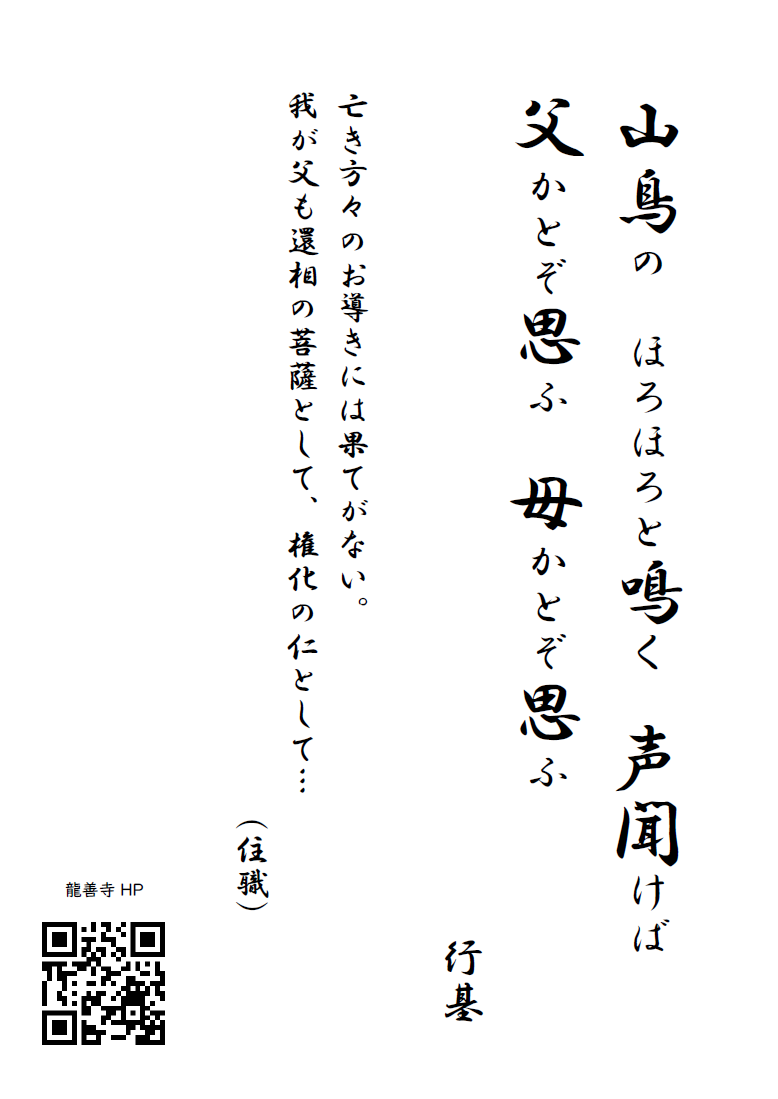 山鳥の　ほろほろと鳴く　声聞けば
父かとぞ思ふ　母かとぞ思ふ
行基
亡き方々のお導きには果てがない。
我が父も還相の菩薩として、権化の仁として…
（住職）
龍善寺 HP